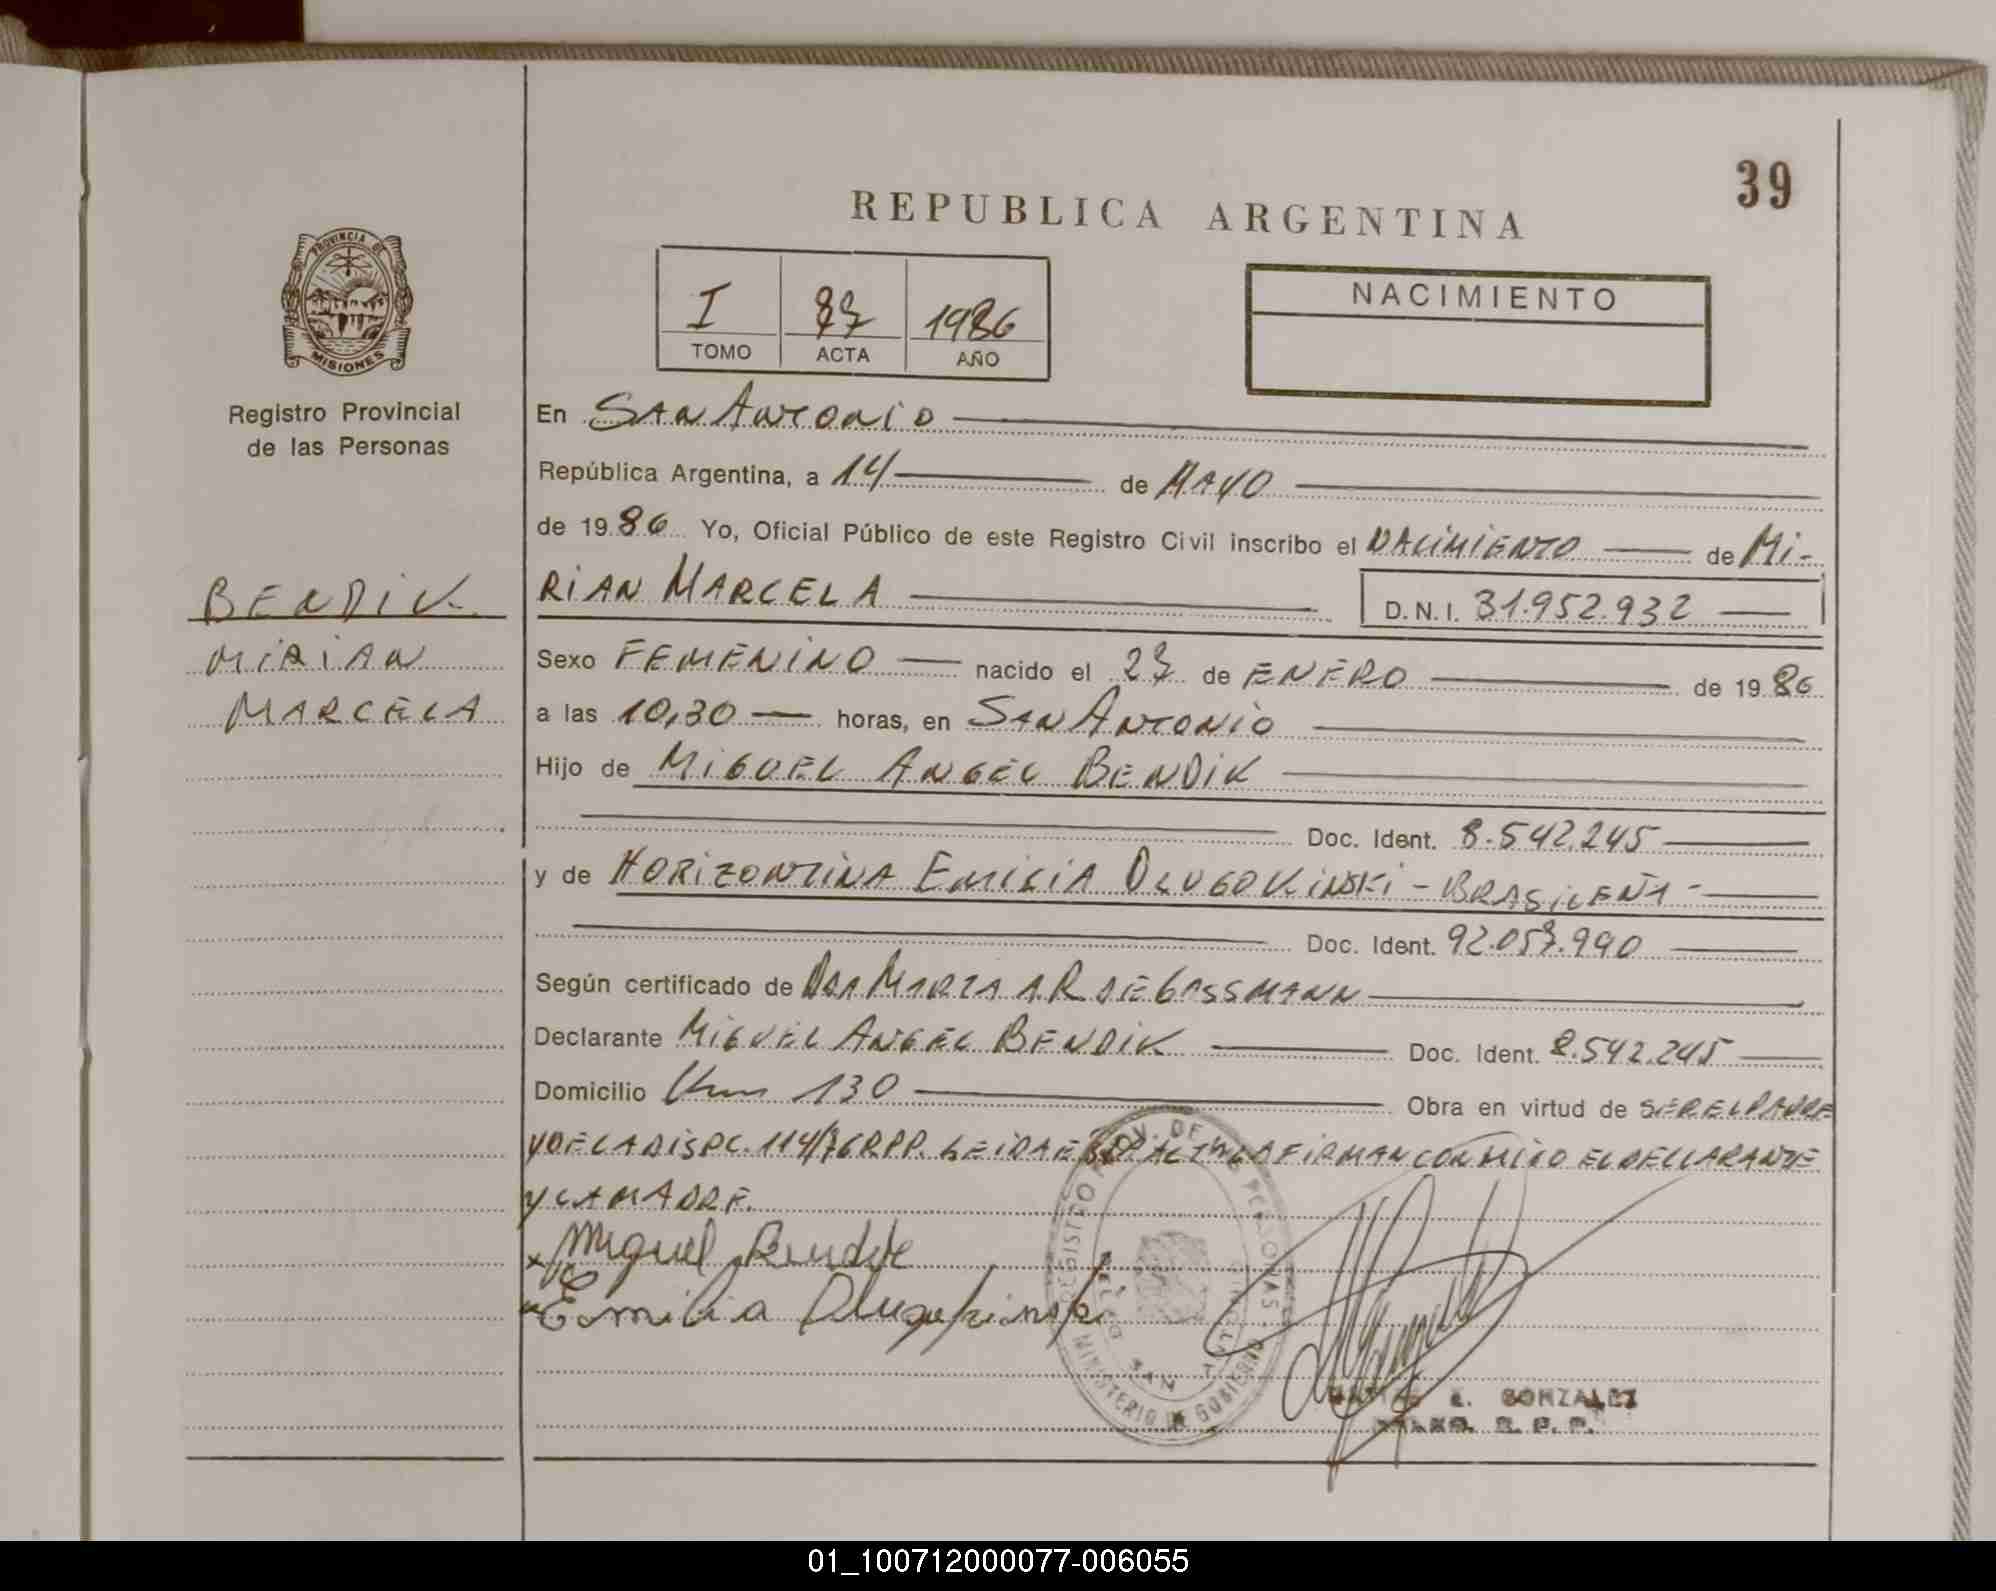 39
REPUBLICA ARGENTINA
PROVINCIA DE
MISIONES
Registro Provincial
de las Personas
I 87 1986
TOMO ACTA AÑO
NACIMIENTO
En SAN ANTONIO
República Argentina, a 14 de MAYO
de 1986 Yo, Oficial Público de este Registro Civil inscribo el NACIMIENTO de MI-
RIAN MARCELA D.N.I. 31.952.932
BENDIK
MIRIAN
MARCELA
Sexo FEMENINO nacido el 27 de ENERO de 1986
a las 10,30 horas, en SAN ANTONIO
Hijo de MIGUEL ANGEL BENDIK
Doc. Ident. 8.542.245
y de HORIZONTINA EMILIA DLUGOKINSKI - BRASILEÑA -
Doc. Ident. 92.057.990
Según certificado de DRA MARTA A.R DE GASSMANN
Declarante MIGUEL ANGEL BENDIK Doc. Ident. 8.542.245
Domicilio Km 130 Obra en virtud de SER EL PADRE
Y DE LA DISPC. 114/76 RPP. LEIDA EL ACTA LA FIRMAN CONMIGO EL DECLARANTE
Y LA MADRE.
x Miguel Bendik
Emilia Dlugokinski
REGISTRO PROV. DE LAS PERSONAS
SAN ANTONIO
MINISTERIO DE GOBIERNO
E. GONZALEZ
R. P. P.
01_100712000077-006055